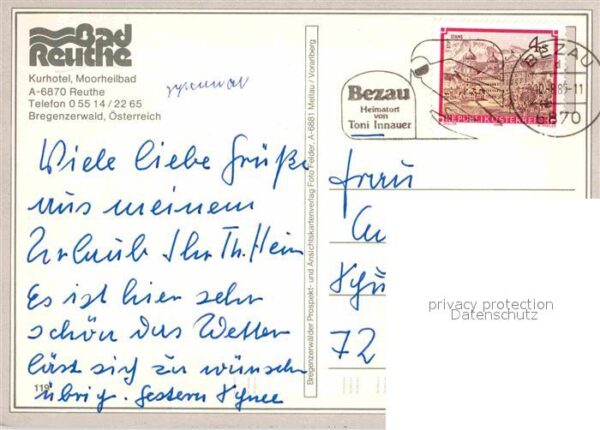 Bad
Reuthe
Kurhotel, Moorheilbad
A-6870 Reuthe
Telefon 0 55 14 / 22 65
Bregenzerwald, Österreich
Viele liebe Grüße
aus meinem
Urlaub Ihr Th. Hein
Es ist hier sehr
schön das Wetter
läst sich zu wünschen
übrig. gestern Schnee
119
Bregenzerwälder Prospekt- und Ansichtskartenverlag Foto Felder, A-6881 Mellau / Vorarlberg
Bezau
Heimatort
von
Toni Innauer
STAMS
4 S
REPUBLIK ÖSTERREICH
BEZAU
85-11
6870
Frau
72
privacy protection
Datenschutz